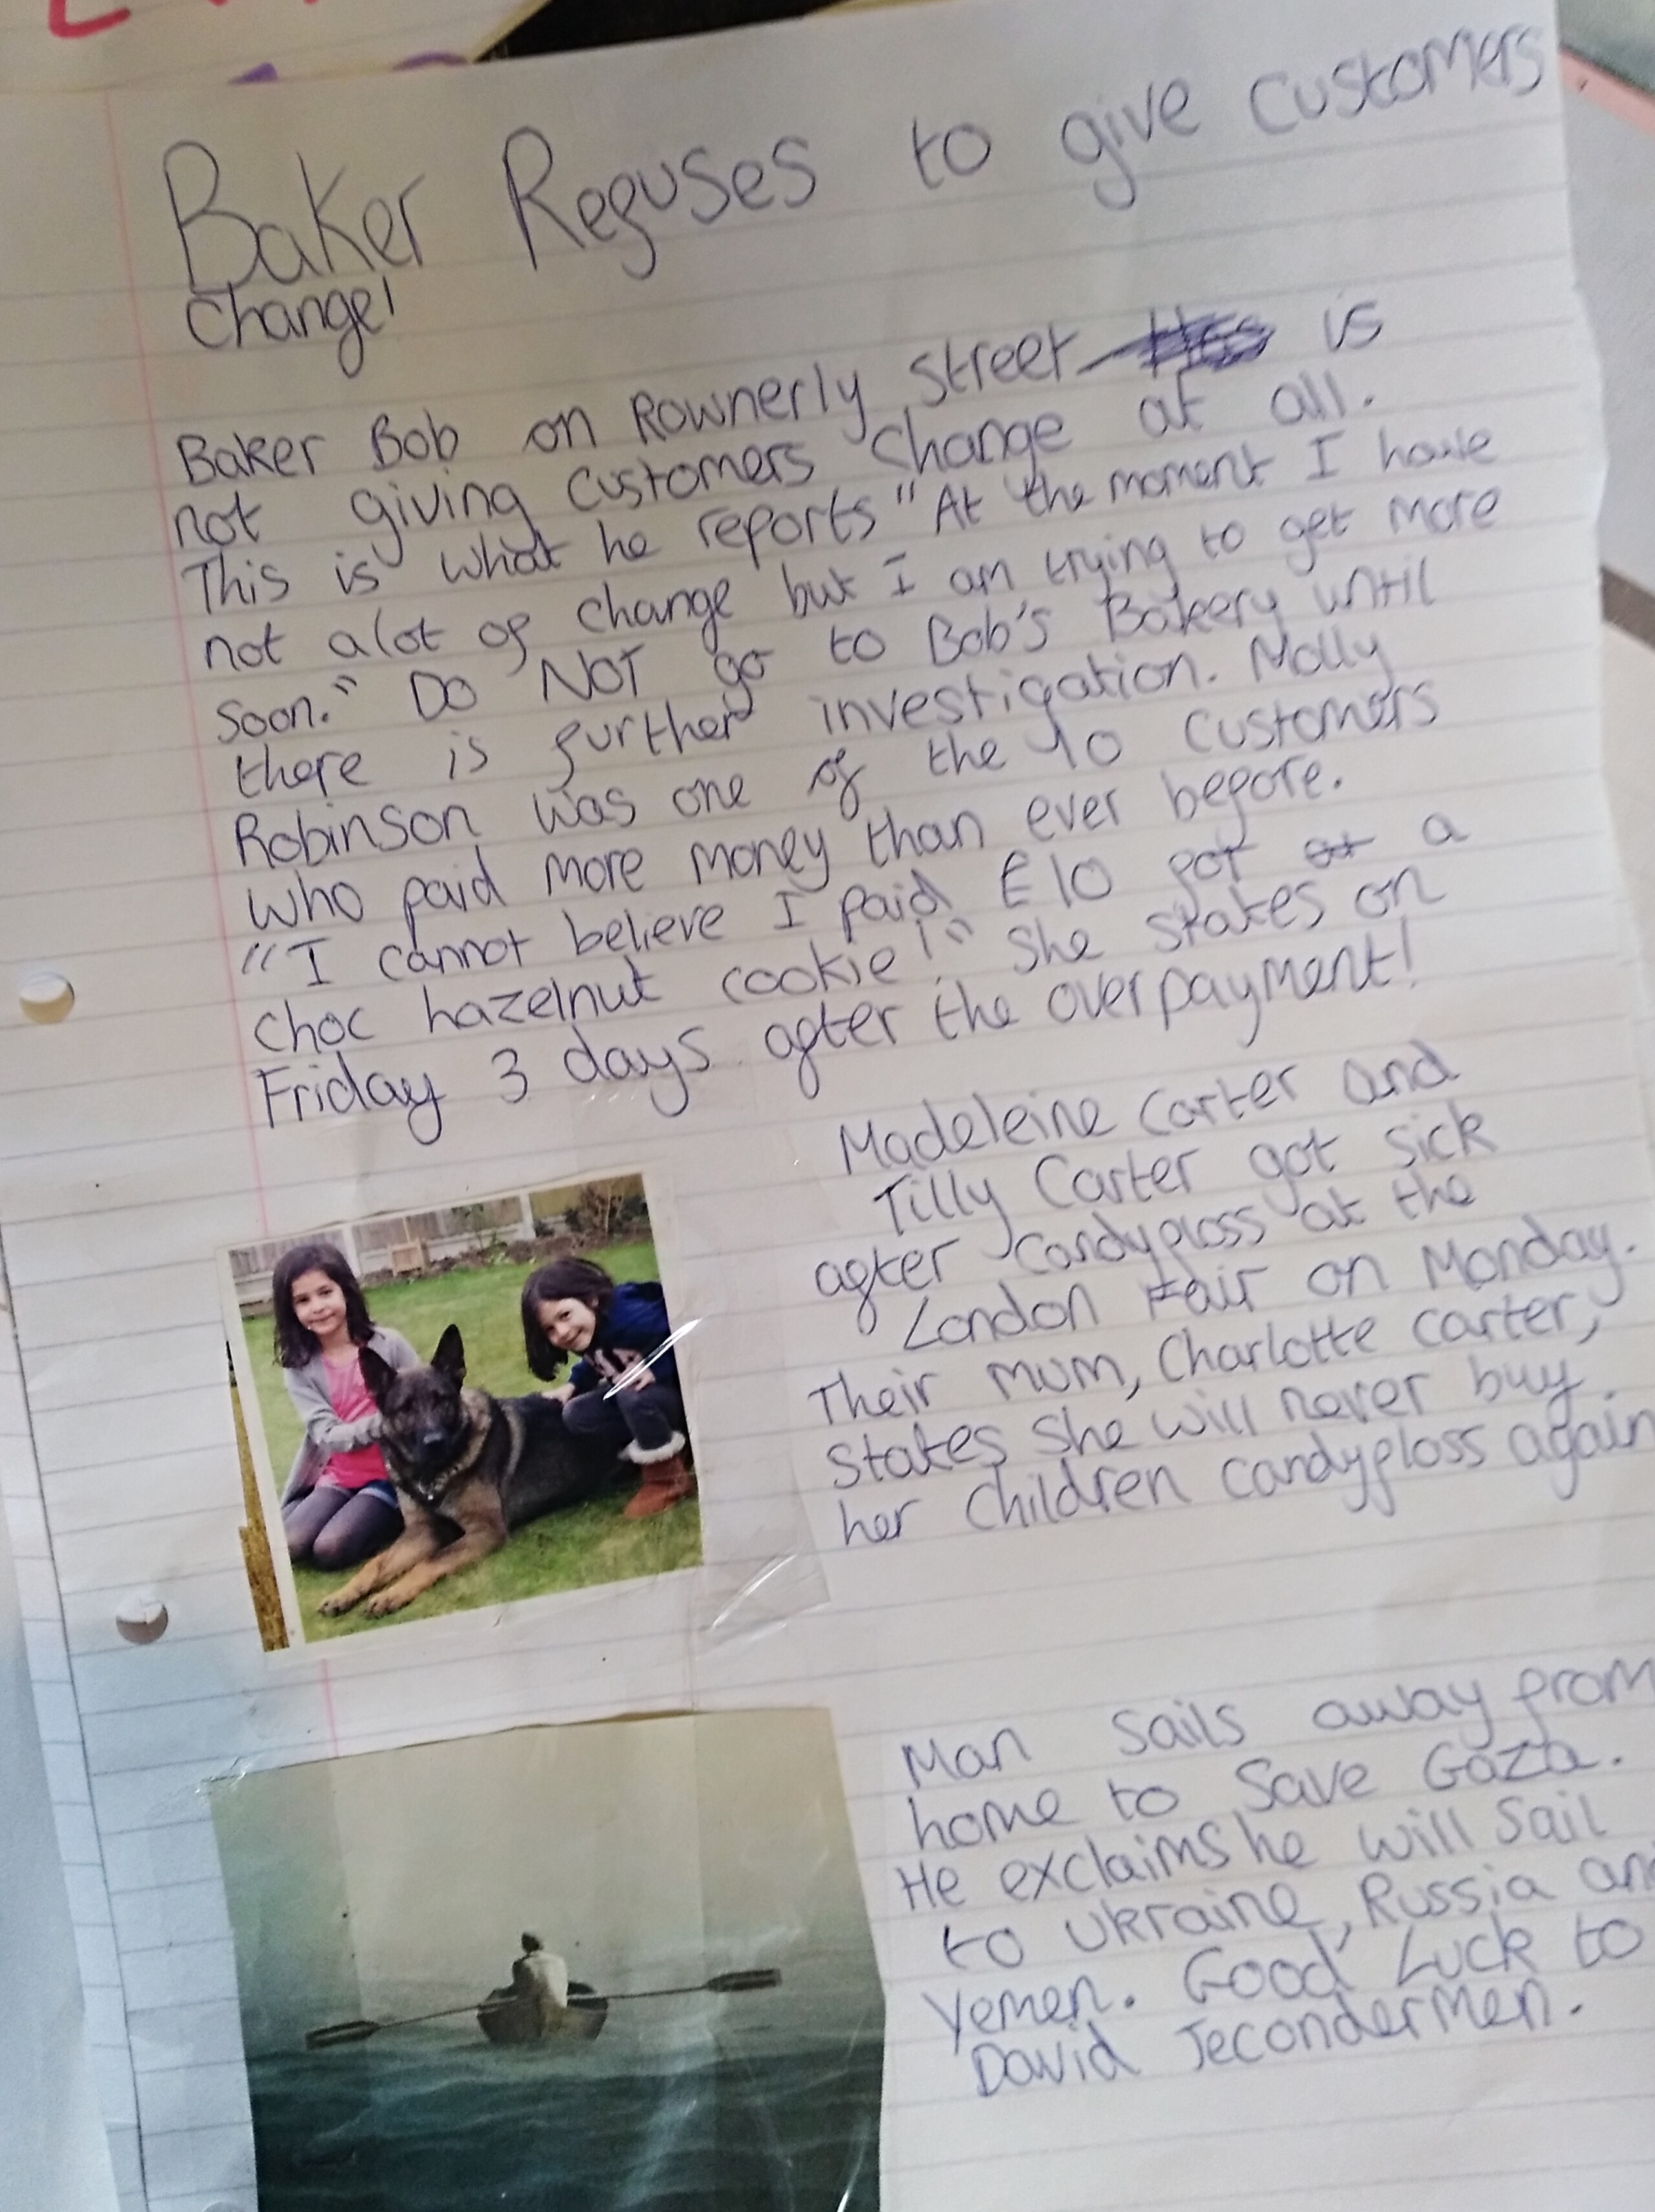 Baker Refuses to give customers
Change!
Baker Bob on Rownerly Street is
not giving customers change at all.
This is what he reports "At the moment I have
not alot of change but I am trying to get more
soon." Do NOT go to Bob's Bakery until
there is further investigation. Molly
Robinson was one of the 40 customers
who paid more money than ever before.
"I cannot believe I paid £10 for a
choc hazelnut cookie!" She states on
Friday 3 days after the overpayment!
Madeleine Carter and
Tilly Carter got sick
after candyfloss at the
London Fair on Monday.
Their mum, Charlotte Carter,
States She will never buy
her children candyfloss again
Man Sails away from
home to Save Gaza.
He exclaims he will sail
to Ukraine, Russia and
Yemen. Good Luck to
David Jecondermen.